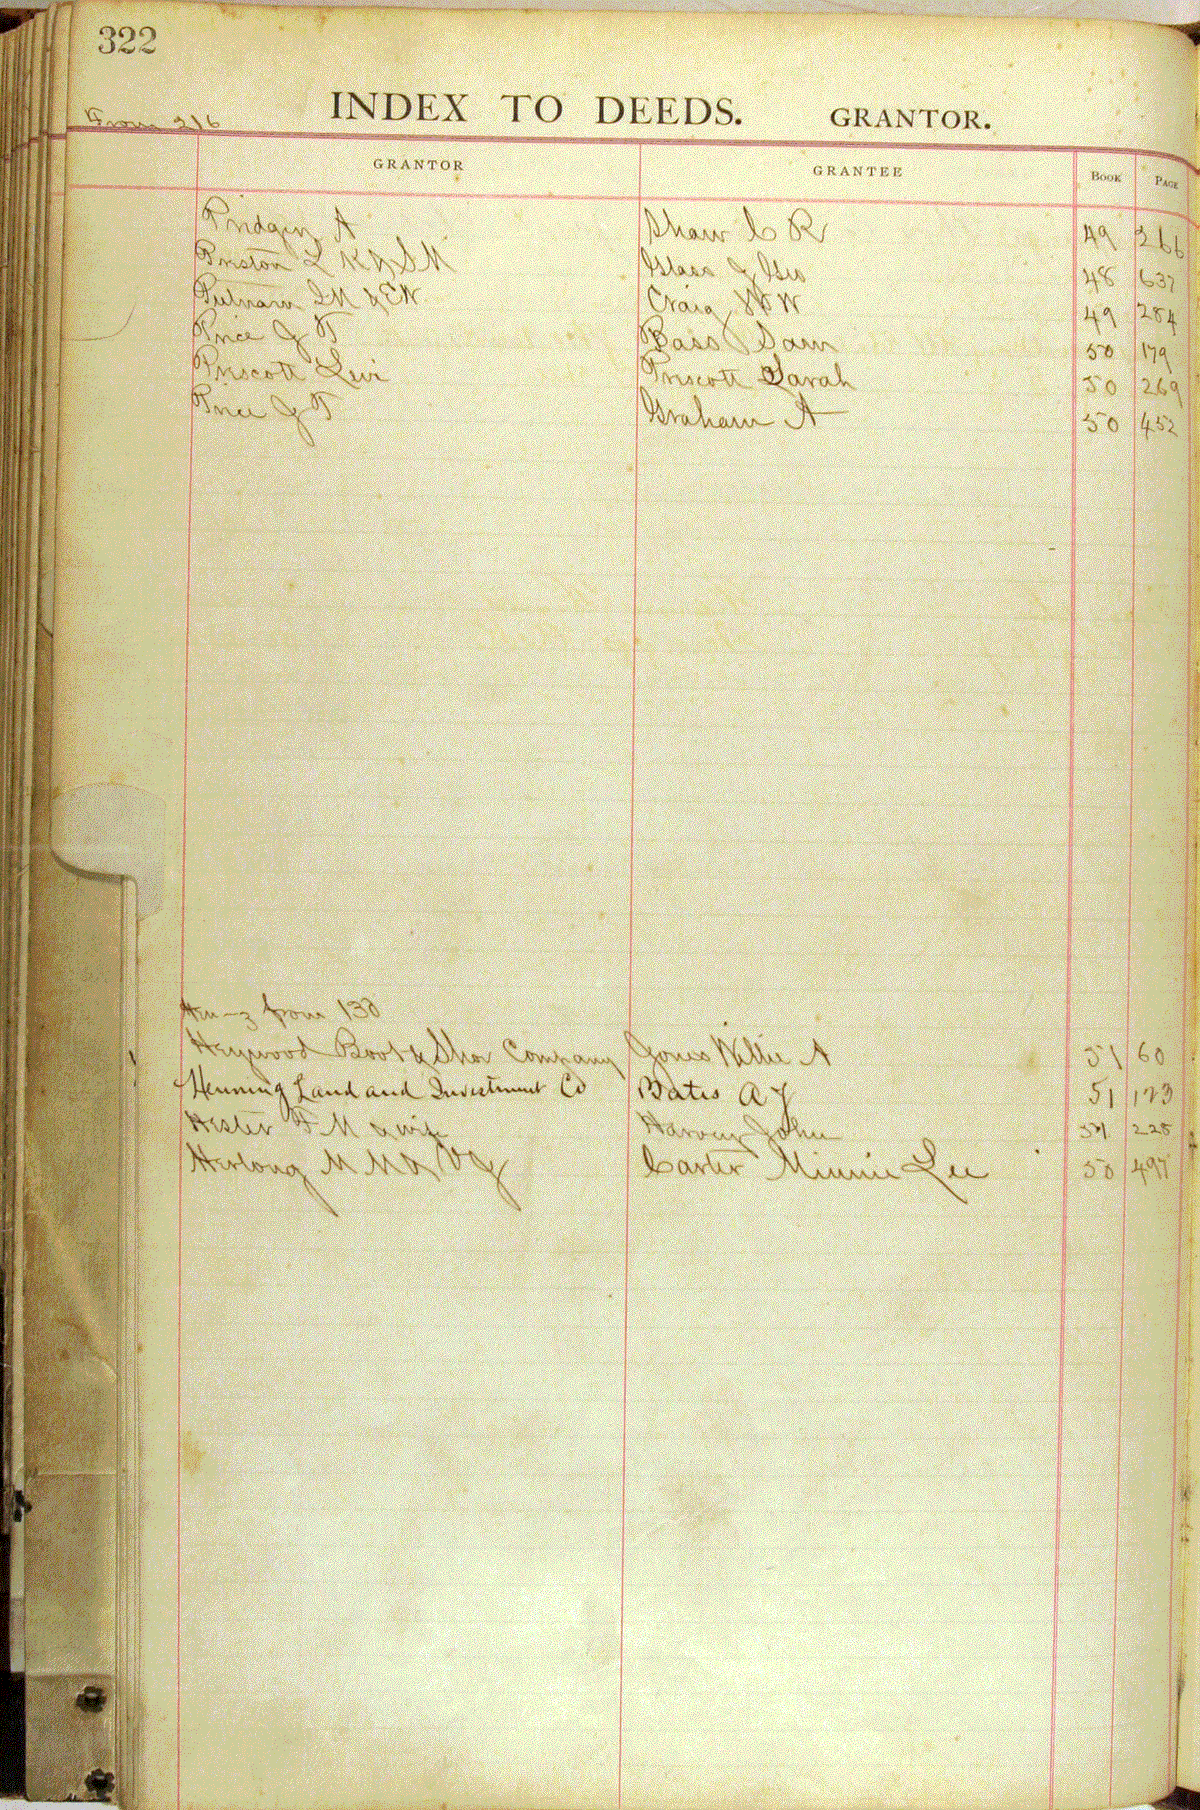 322
INDEX TO DEEDS. GRANTOR.
From 216
GRANTOR GRANTEE BOOK PAGE
Pridgin A Shaw C R 49 266
Preston L K & S M Glass J Geo 48 637
Putnam & E W Craig W W 49 284
Price J T Bass Sam 50 179
Priscott Levi Priscott Sarah 50 269
Price J T Graham A 50 452
from 130
Heywood Boot & Shoe Company Jones Willie A 51 60
Henning Land and Investment Co Bates A J 51 123
Hester F M & wife Harvey John 51 228
Herlong M M & V J Carter Minnie Lee 50 497